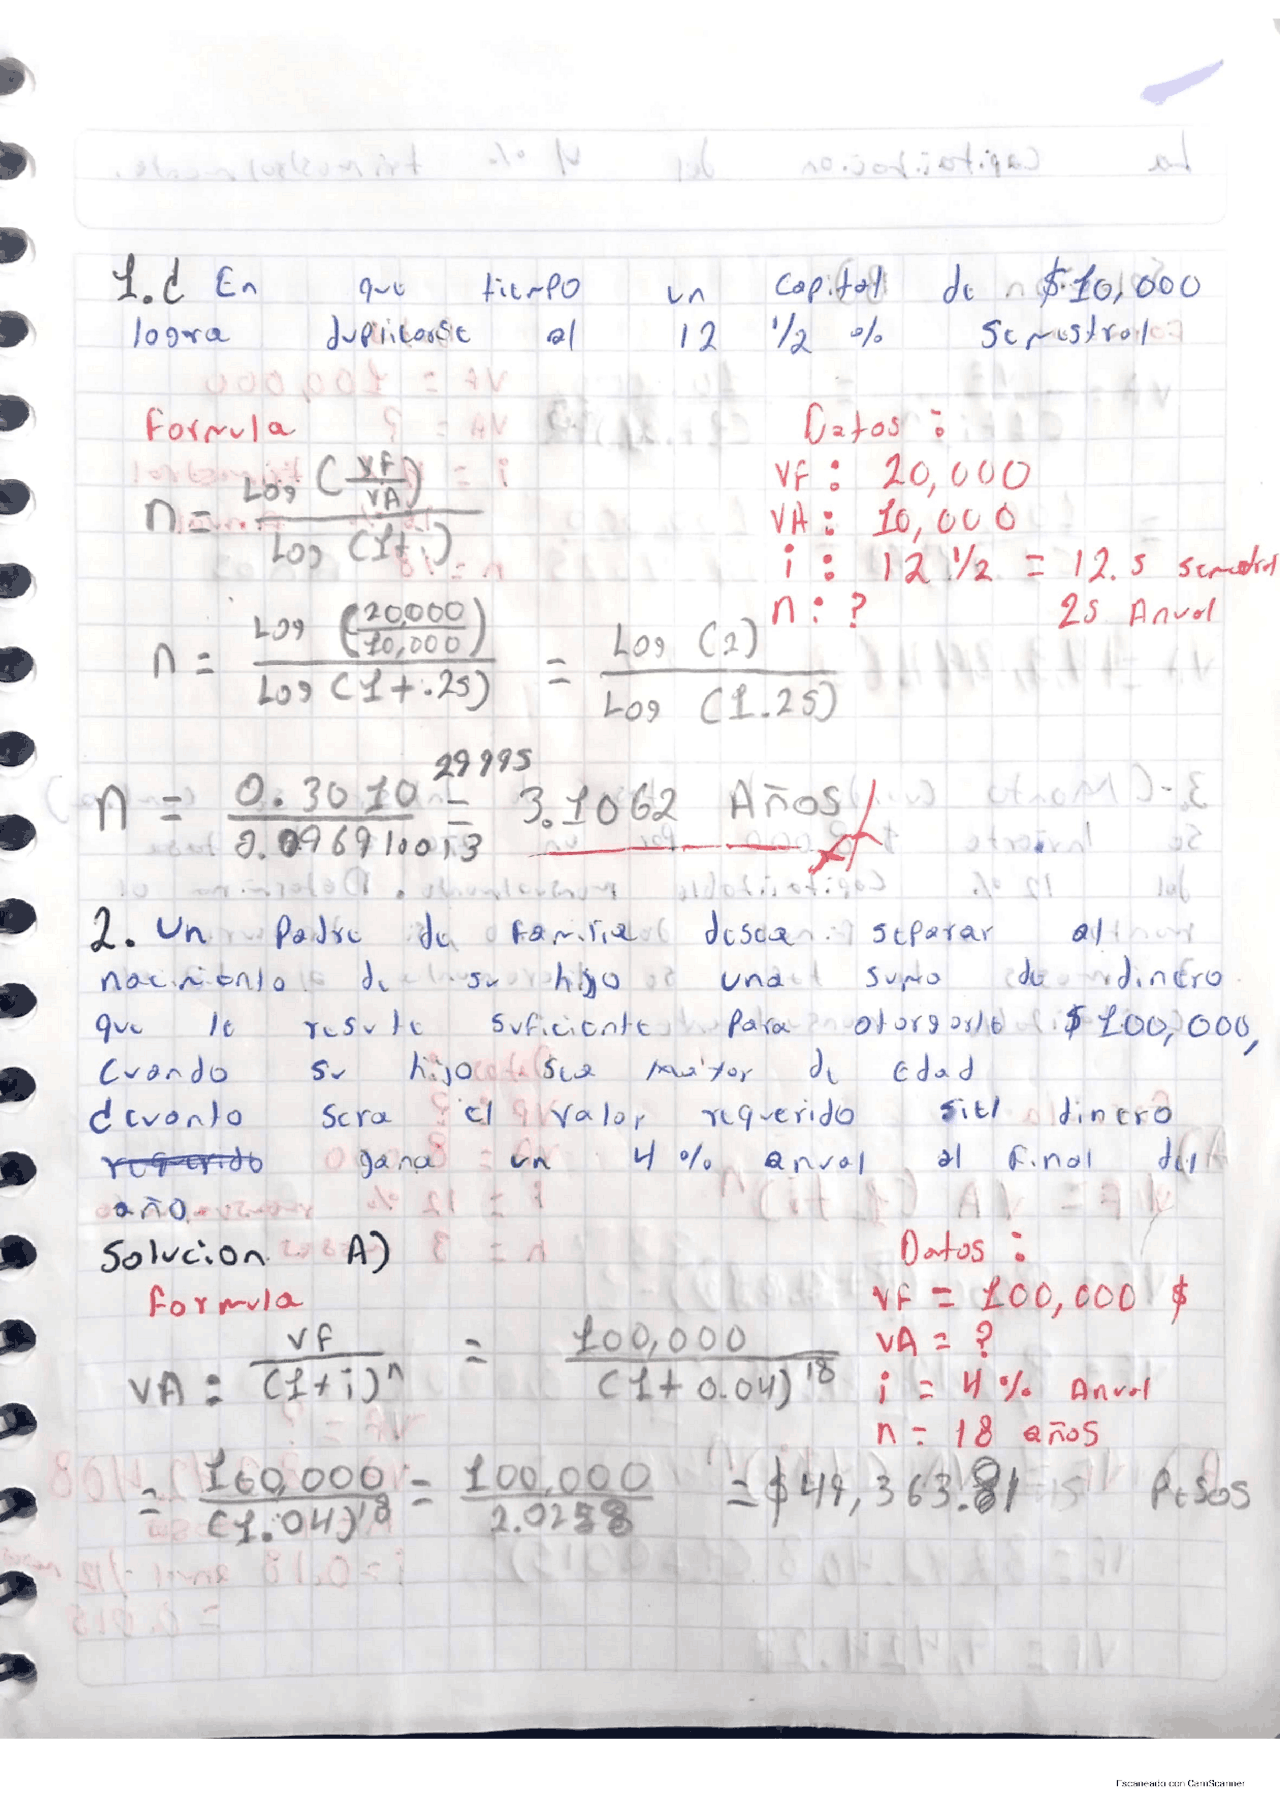 1. ¿ En que tiempo un capital de $10,000
logra duplicarse al 12 1/2 % semestral
Formula
Datos :
n = Log (VF/VA) / Log (1+i)
VF : 20,000
VA : 10,000
i : 12 1/2 = 12.5 semestral
25 Anual
n : ?
n = Log (20,000/10,000) / Log (1+.25) = Log (2) / Log (1.25)
n = 0.301029995 / 0.096910013 = 3.1062 Años
2. Un Padre de familia desea separar al
nacimiento de su hijo una suma de dinero
que le resulte suficiente para otorgarle $100,000,
cuando su hijo sea maior de edad
de cuanto sera el valor requerido si el dinero
requerido gana un 4 % anual al final del
año.
Solucion A)
Datos :
Formula
VF = 100,000 $
VA = ?
VA = VF / (1+i)^n = 100,000 / (1+0.04)^18
i = 4 % Anual
n = 18 años
= 100,000 / (1.04)^18 = 100,000 / 2.0258 = $49,363.81 Pesos
Escaneado con CamScanner